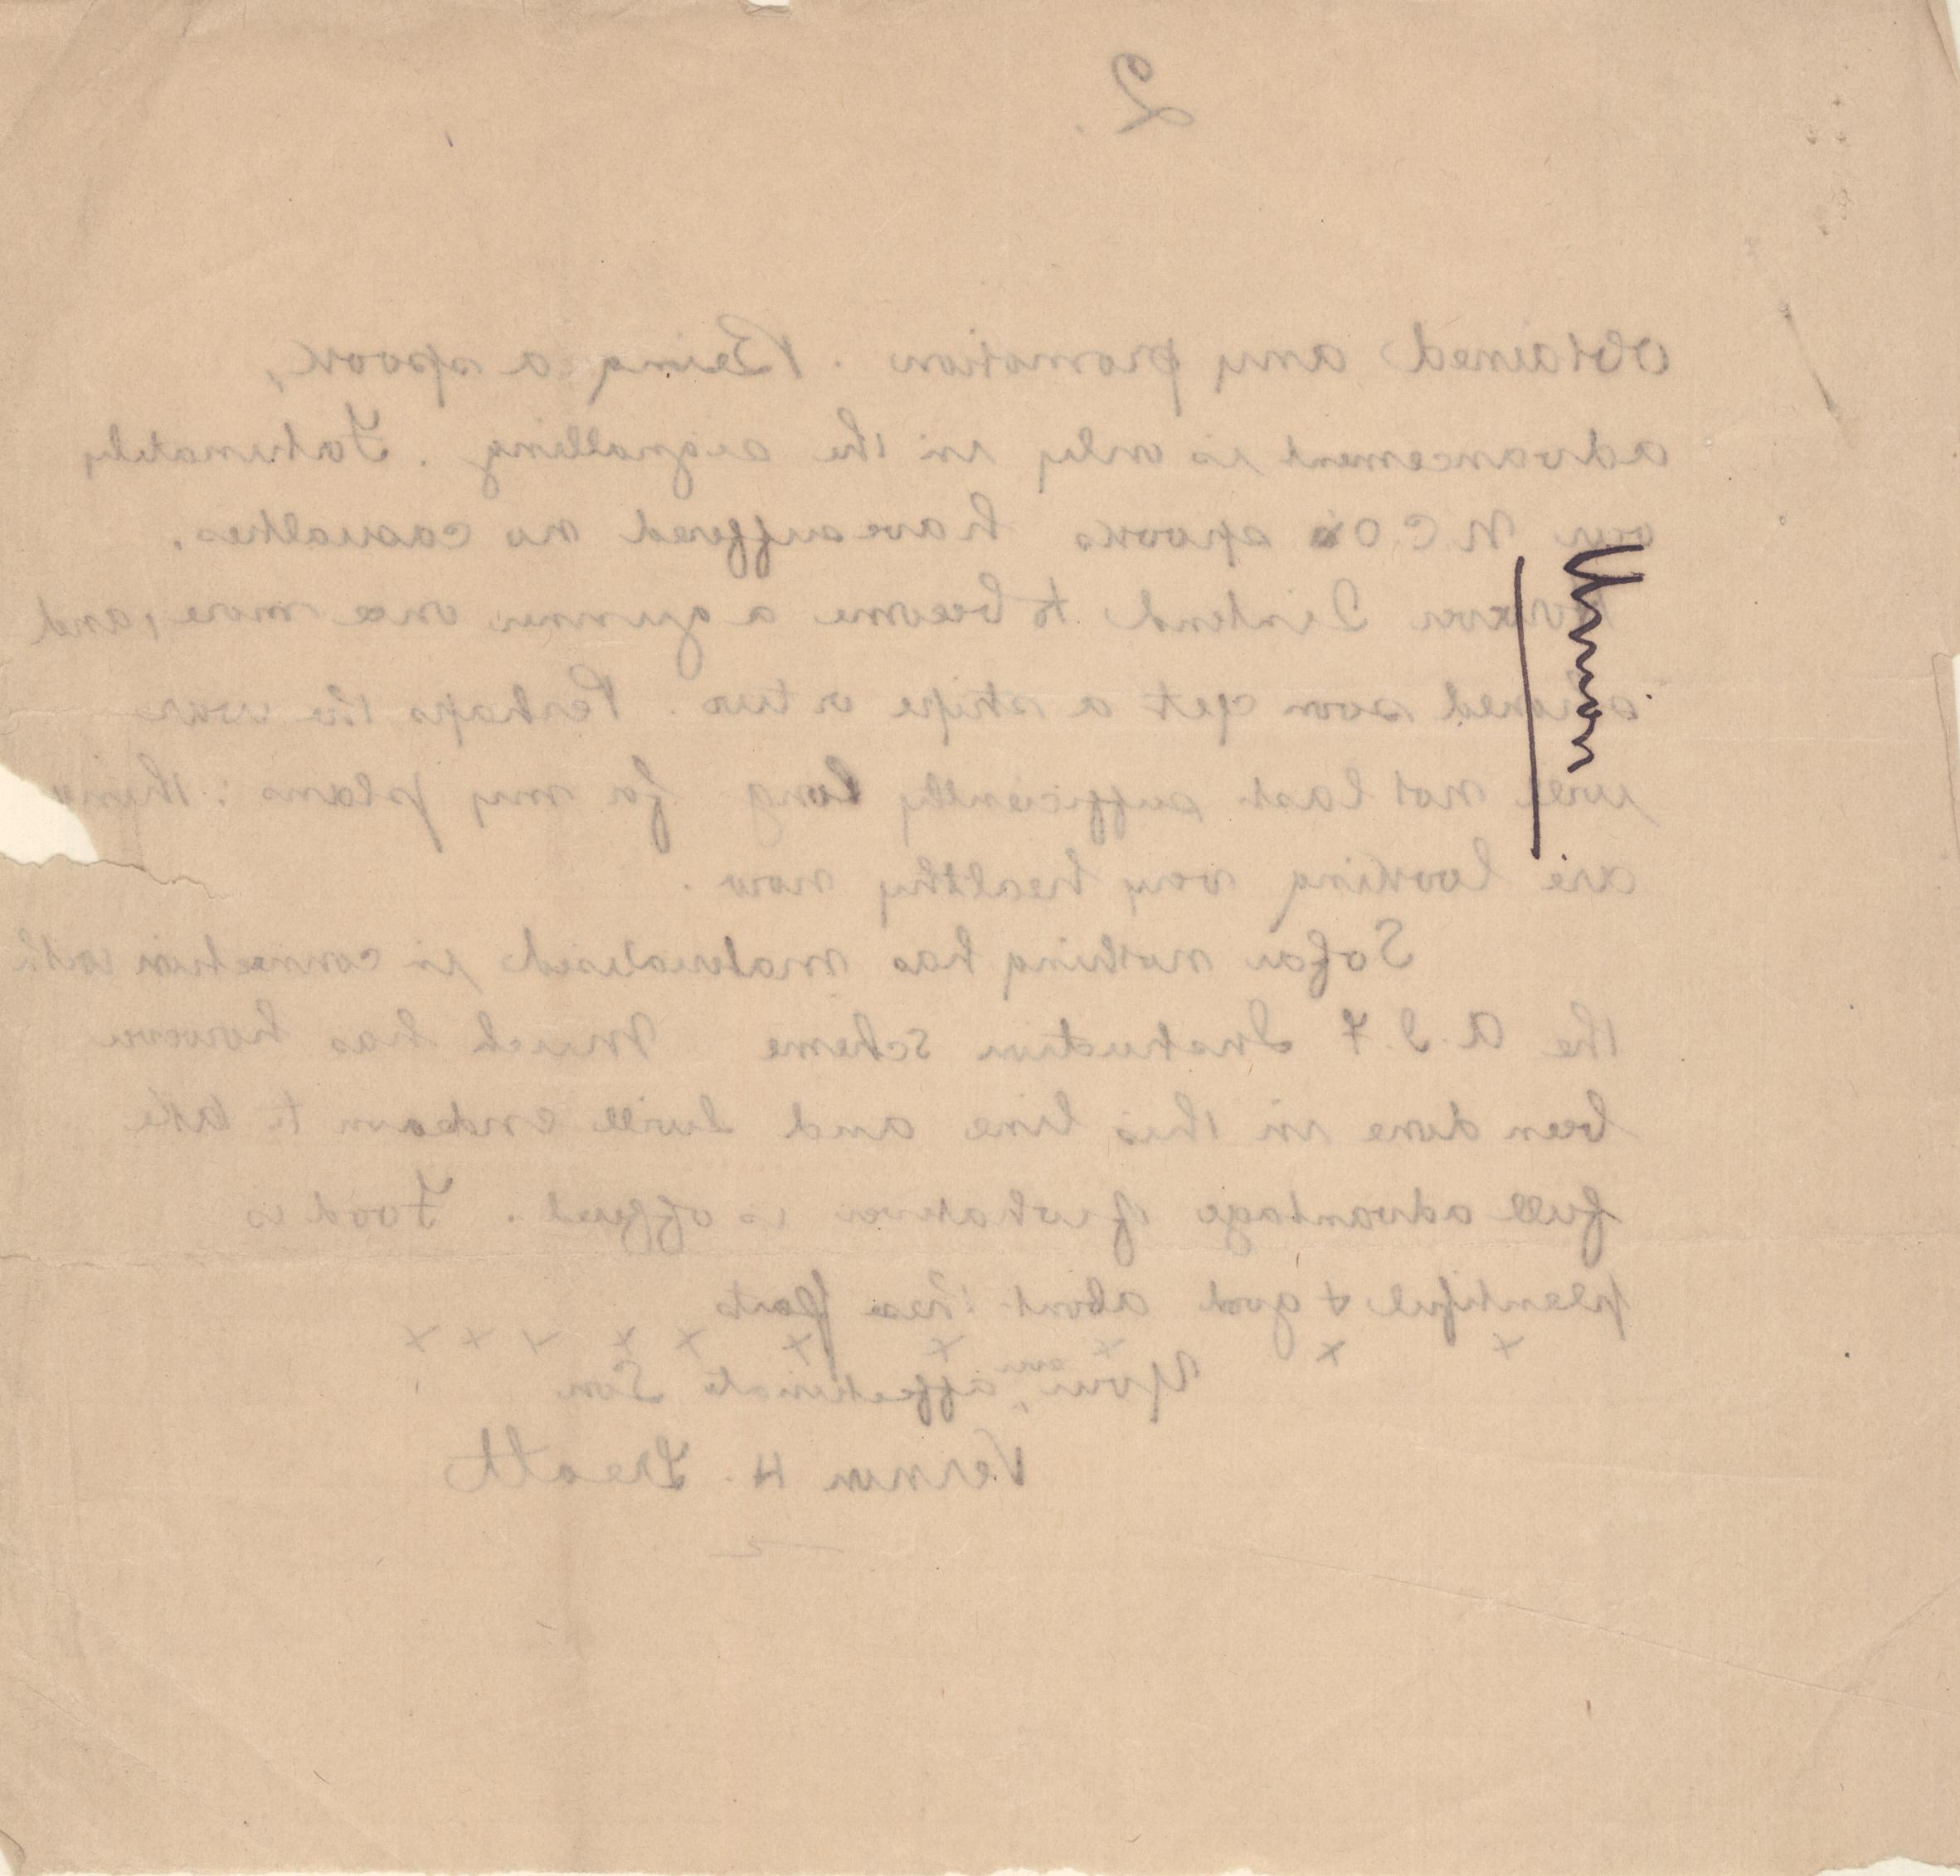 2.
obtained any promotion. Being a spook,
advancement is only in the signalling. Fortunately
our N.C.O's spooks have suffered no casualties.
However I intend to become a gunner once more, and
should soon get a stripe or two. Perhaps the war
will not last sufficiently long for my plans: things
are looking very healthy now.
So far nothing has materialised in connection with
the A.I.F Instruction scheme Much has however
been done in this line and I will endeavor to take
full advantage of whatever is offered. Food is
plentiful & good about these parts
x x x x x x x x x x
Your affectionate Son
Vernon H.
Vernon